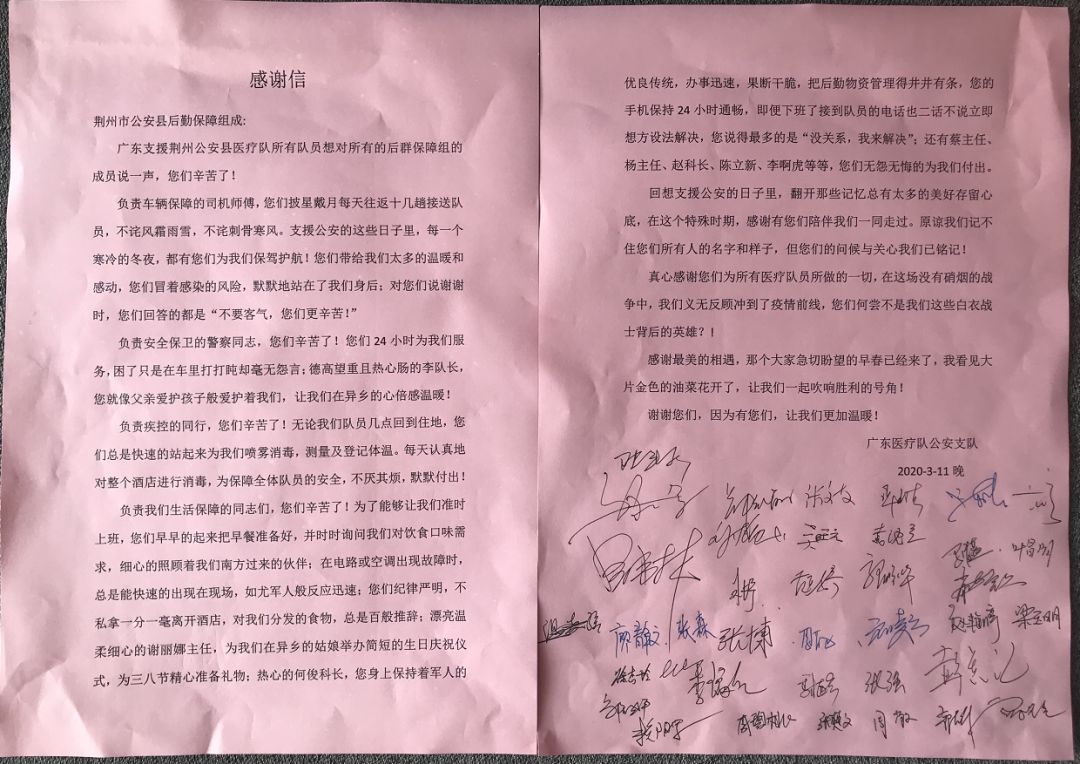 感谢信
荆州市公安县后勤保障组成:
广东支援荆州公安县医疗队所有队员想对所有的后群保障组的
成员说一声，您们辛苦了！
负责车辆保障的司机师傅，您们披星戴月每天往返十几趟接送队
员，不诧风霜雨雪，不诧刺骨寒风。支援公安的这些日子里，每一个
寒冷的冬夜，都有您们为我们保驾护航！您们带给我们太多的温暖和
感动，您们冒着感染的风险，默默地站在了我们身后；对您们说谢谢
时，您们回答的都是“不要客气，您们更辛苦！”
负责安全保卫的警察同志，您们辛苦了！您们 24 小时为我们服
务，困了只是在车里打打盹却毫无怨言；德高望重且热心肠的李队长，
您就像父亲爱护孩子般爱护着我们，让我们在异乡的心倍感温暖！
负责疾控的同行，您们辛苦了！无论我们队员几点回到住地，您
们总是快速的站起来为我们喷雾消毒，测量及登记体温。每天认真地
对整个酒店进行消毒，为保障全体队员的安全，不厌其烦，默默付出！
负责我们生活保障的同志们，您们辛苦了！为了能够让我们准时
上班，您们早早的起来把早餐准备好，并时时询问我们对饮食口味需
求，细心的照顾着我们南方过来的伙伴；在电路或空调出现故障时，
总是能快速的出现在现场，如尤军人般反应迅速；您们纪律严明，不
私拿一分一毫离开酒店，对我们分发的食物，总是百般推辞；漂亮温
柔细心的谢丽娜主任，为我们在异乡的姑娘举办简短的生日庆祝仪
式，为三八节精心准备礼物；热心的何俊科长，您身上保持着军人的
优良传统，办事迅速，果断干脆，把后勤物资管理得井井有条，您的
手机保持 24 小时通畅，即便下班了接到队员的电话也二话不说立即
想方设法解决，您说得最多的是“没关系，我来解决”；还有蔡主任、
杨主任、赵科长、陈立新、李啊虎等等，您们无怨无悔的为我们付出。
回想支援公安的日子里，翻开那些记忆总有太多的美好存留心
底，在这个特殊时期，感谢有您们陪伴我们一同走过。原谅我们记不
住您们所有人的名字和样子，但您们的问候与关心我们已铭记！
真心感谢您们为所有医疗队员所做的一切，在这场没有硝烟的战
争中，我们义无反顾冲到了疫情前线，您们何尝不是我们这些白衣战
士背后的英雄？！
感谢最美的相遇，那个大家急切盼望的早春已经来了，我看见大
片金色的油菜花开了，让我们一起吹响胜利的号角！
谢谢您们，因为有您们，让我们更加温暖！
广东医疗队公安支队
2020-3-11 晚
张森
张强